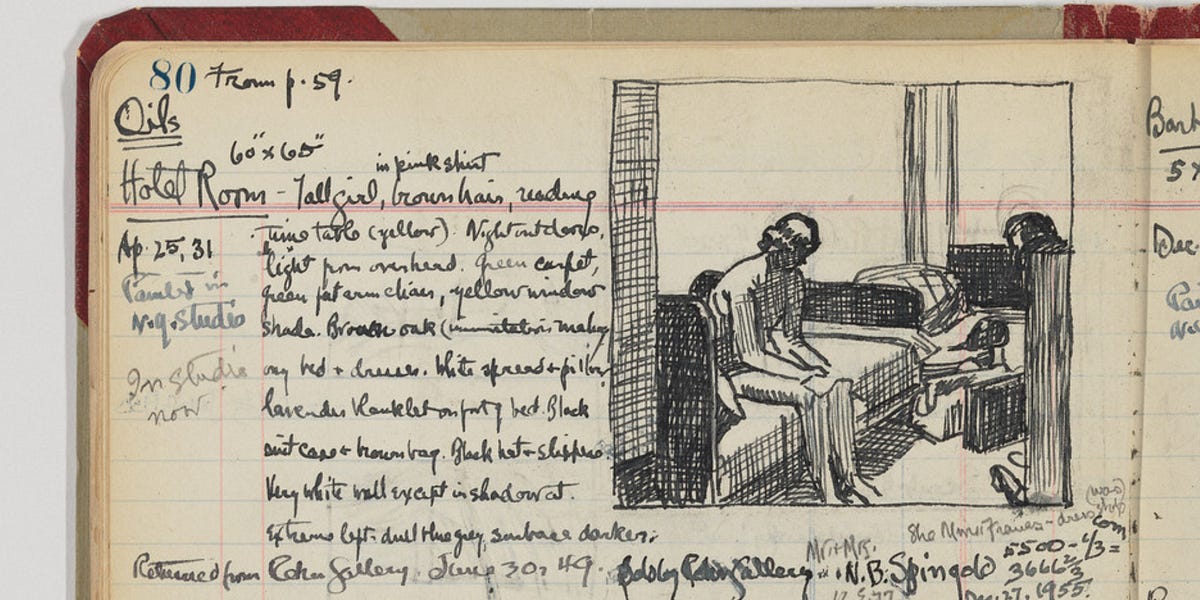 80 From p. 59.
Oils
60" x 65"
in pink shirt
Hotel Room - Tall girl, brown hair, reading
Ap. 25, 31
time table (yellow). Night out doors,
light from overhead. Green carpet,
Painted in
green fat arm chair, yellow window
N.Y. Studio
shade. Brown oak (immitation mahog
any bed + dresser. White spread + pillow
In Studio
now
lavender blanket on foot of bed. Black
suit case + brown bag. Black hat + slippers
Very white wall except in shadow at
Extreme left - dull blue grey, surbase darker.
(was)
She Mimi Frances - dress shop
Com
Returned from Rehn Gallery. June 30, 49.
Sols by Rehn Gallery
Mr. + Mrs.
N. B. Spingold
5500 - 1/3 =
3666 2/3
Dec. 27, 1955.
Barb
5 x
Dec.